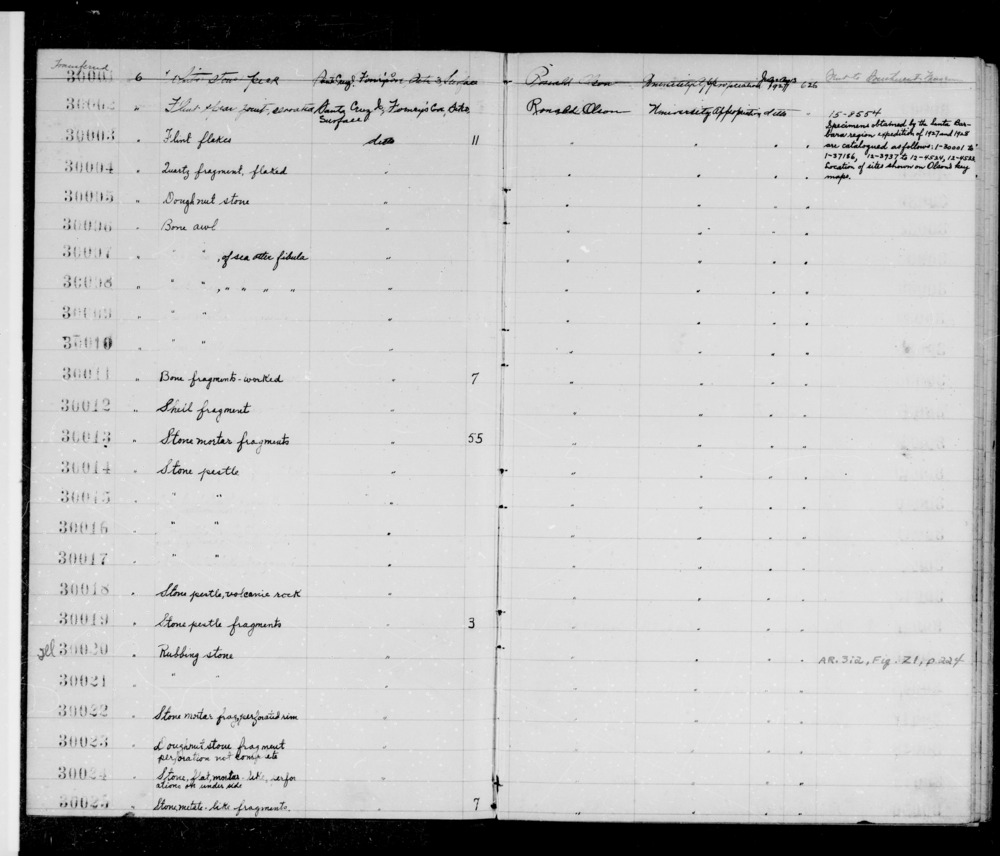 Transferred
30001 6 stone Santa Cruz I. Surface Ronald Olson University Appropriation 1927 626
30002 " Flint spear point, serrated Santa Cruz I., Forney's Cove, Ronald Olson University Appropriation ditto " 15-8554
Surface
Specimens obtained by the Santa Bar-
bara region expedition of 1927 and 1928
are catalogued as follows: 1-30001 to
1-37186, 12-3937 to 12-4524, 12-4528
Location of sites shown on Olson's key
maps.
30003 " Flint flakes ditto 11 " " " "
30004 " Quartz fragment, flaked " " " " "
30005 " Doughnut stone " " " " "
30006 " Bone awl " " " " "
30007 " " " , of sea otter fibula " " " " "
30008 " " " , " " " " " " " " "
30009 " " " " " " " "
30010 " " " " " " " "
30011 " Bone fragments - worked " 7 " " " "
30012 " Shell fragment " " " " "
30013 " Stone mortar fragments " 55 " " " "
30014 " Stone pestle " " " " "
30015 " " " " " " " "
30016 " " " " " " " "
30017 " " " " " " " "
30018 " Stone pestle, volcanic rock " " " " "
30019 " Stone pestle fragments " 3 " " " "
30020 " Rubbing stone " " " " " AR. 312, Fig. 21, p. 224
30021 " " " " " " " "
30022 " Stone mortar frag, perforated rim " " " " "
30023 " Doughnut stone fragment " " " " "
perforation not complete
30024 " Stone, flat, mortar-like, perfor " " " " "
ations on under side
30025 " Stone, metate-like fragments. " 7 " " " "